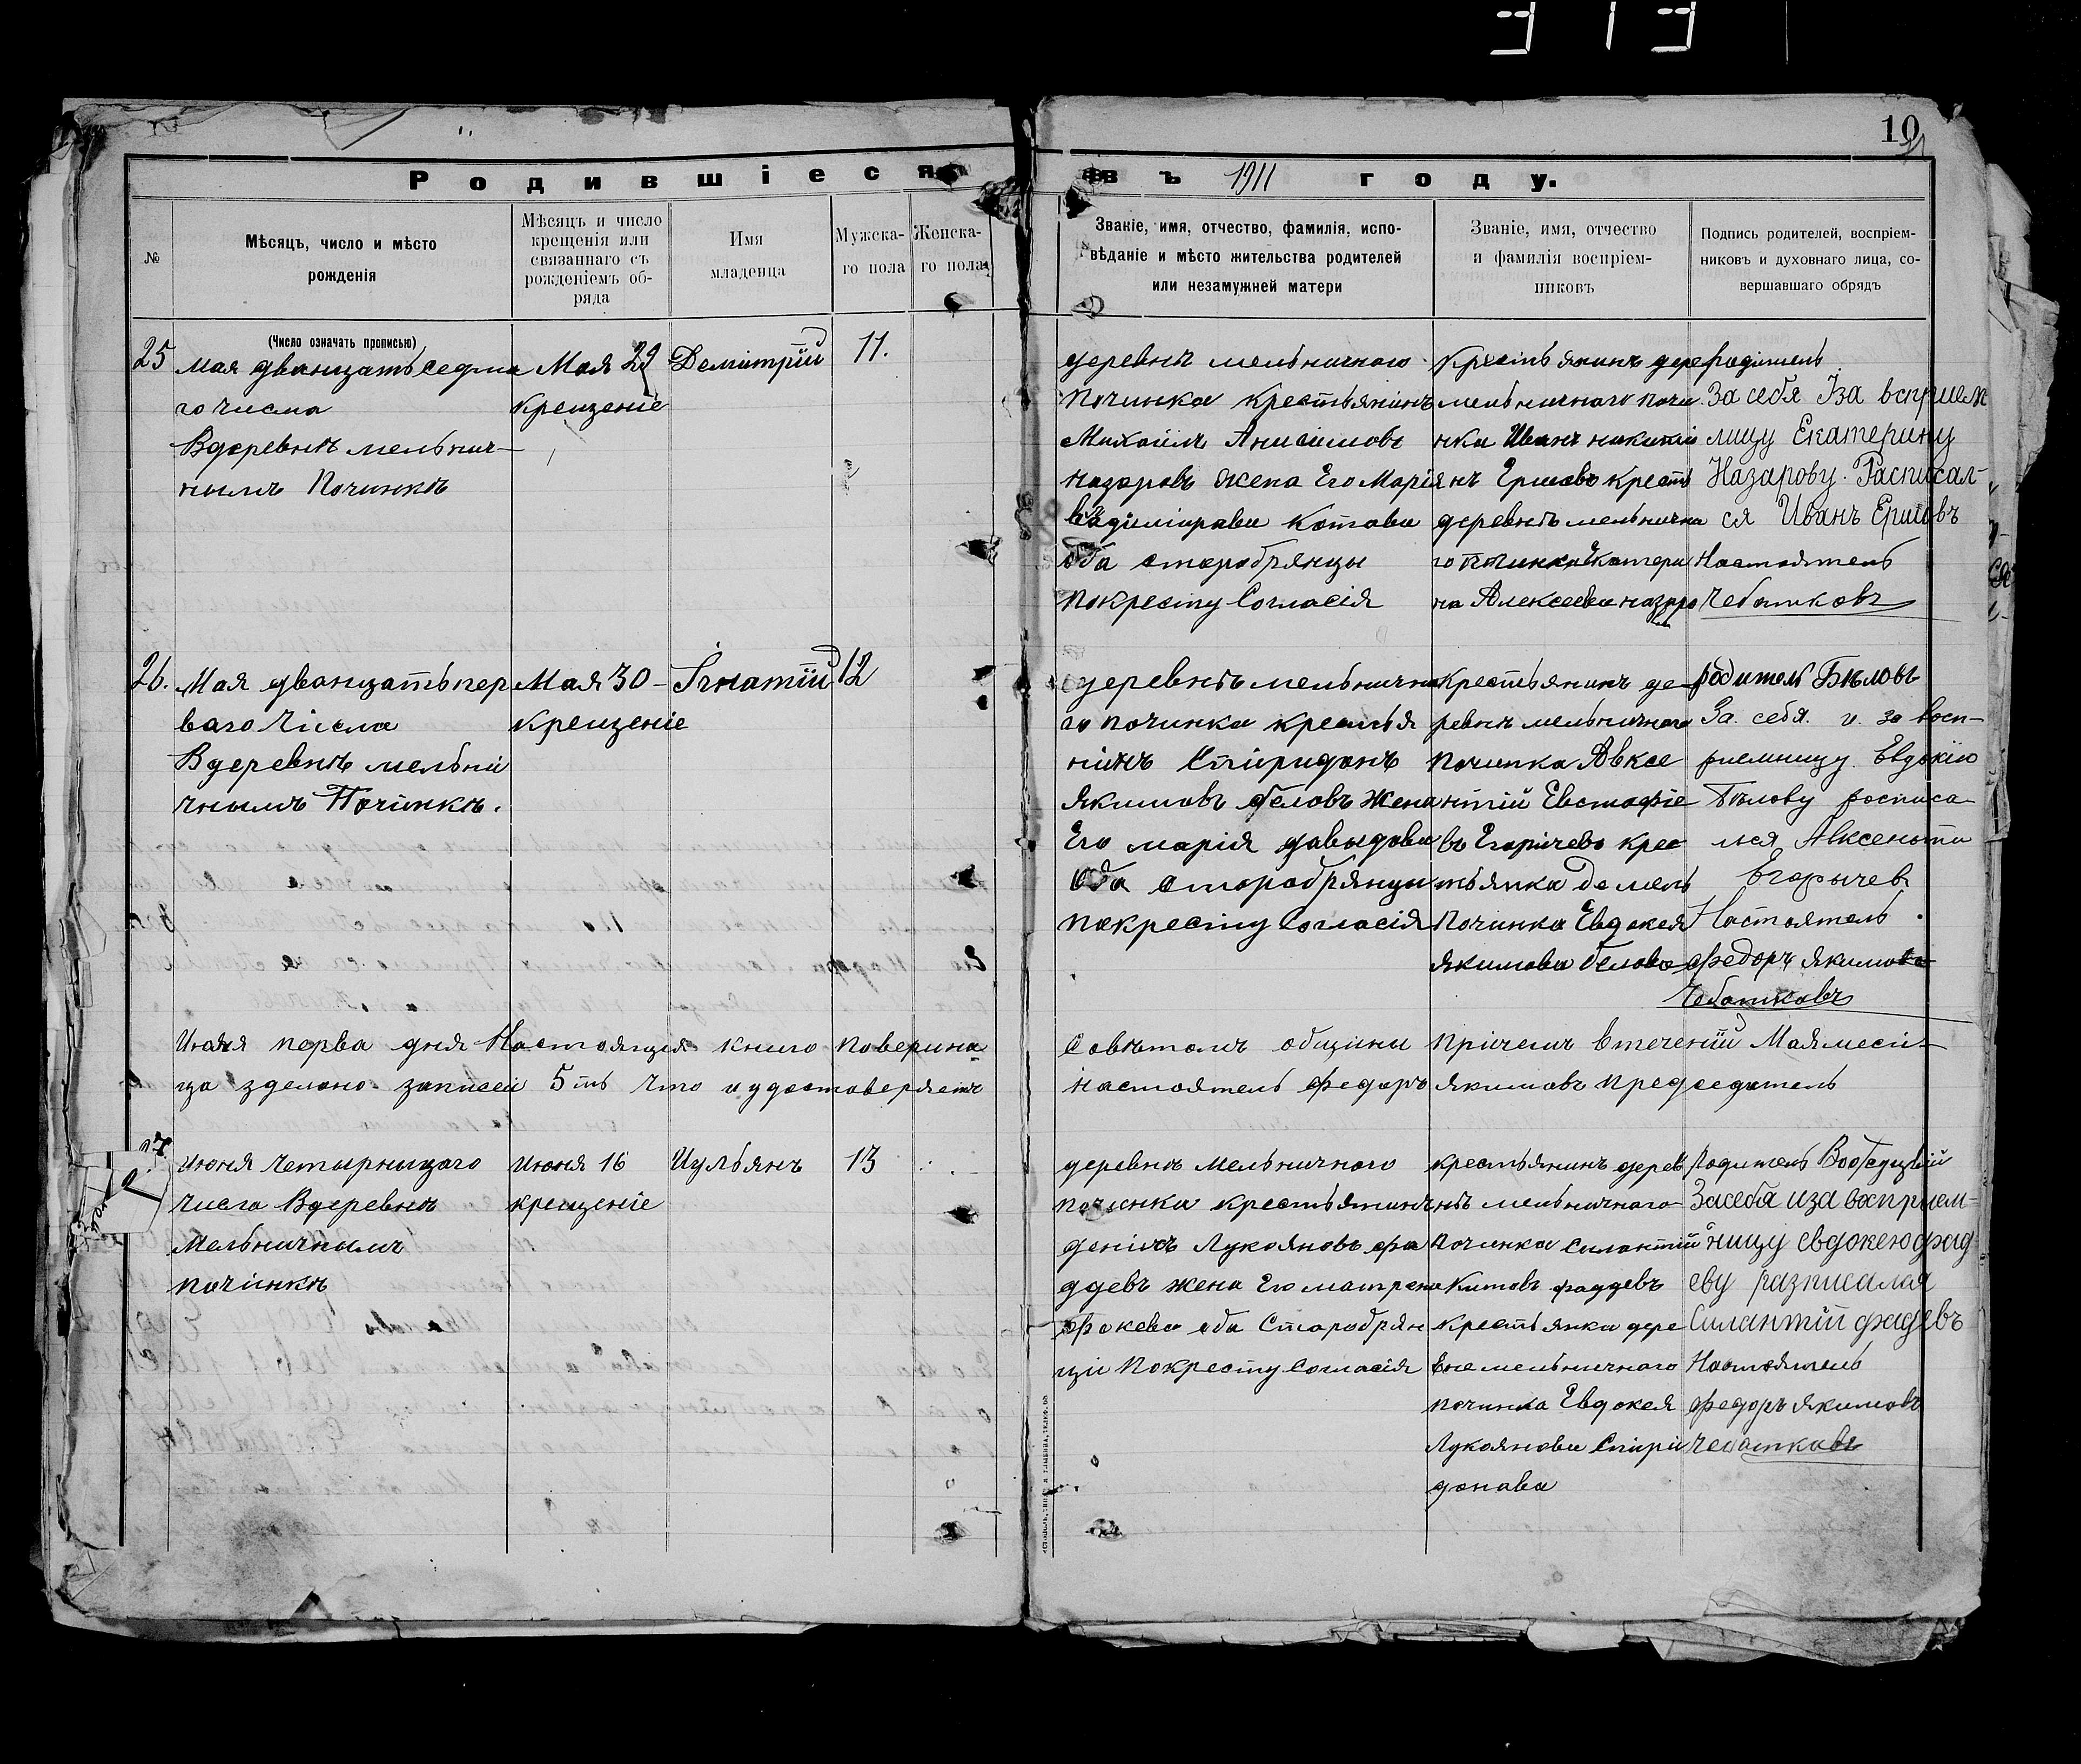 313
19
Родившіеся
въ 1911 году.
№
Мѣсяцъ, число и мѣсто
рожденія
Мѣсяцъ и число
крещенія или
связаннаго съ
рожденіемъ об-
ряда
Имя
младенца
Мужска-
го пола
Женска-
го пола
Званіе, имя, отчество, фамилія, испо-
вѣданіе и мѣсто жительства родителей
или незамужней матери
Званіе, имя, отчество
и фамилія воспріем-
никовъ
Подпись родителей, воспріем-
никовъ и духовнаго лица, со-
вершавшаго обрядъ
(Число означать прописью)
25
мая дванцать седма
го числа
Вдеревнѣ мельнич-
нымъ Починкѣ
Мая 29
крещеніе
Демитрїй
11.
деревнѣ мельничного
Починка крестьянинъ
Михаилъ Анисимовъ
назаровъ жена Его Марія
Котова
оба старобрянцы
покресту Согласія
Крестьянинъ дере
мельничнаго почи
нка Иванъ никити
нъ Ершовъ крест
деревнѣ мельнична
го починка Екатери
на Алексеева назаро
родитель
За себя Іза всприем
лицу Екатерину
Назарову. Расписал-
ся Иванъ Ершовъ
Настоятель
Чеботковъ
26.
Мая дванцать пер
ваго Числа
Вдеревнѣ мельни
чнымъ Починкѣ.
Мая 30
крещеніе
Ігнатїй
12
деревнѣ мельнична
го починка крестья
нинъ Спиридонъ
Якимовъ беловъ жена
Его марія давыдова
оба старобрянцы
покресту Согласія
крестьянинъ де
ревнѣ мельничнаго
починка Авксе
нтій Евстафіе
въ Егоричевъ крес
тьянка де мель
Починка Евдокея
якимова белова
родитель Бѣловъ
За себя. и за восп-
риемницу Евдокію
Бѣлову росписа
лся Авксеньти
Егорычев
Настоятель
федоръ якимовъ
Чеботковъ
Июня перва дня Настоящея книга поверина
Совѣтомъ общины причемъ втеченїй Мая меси-
ца зделано записей 5ть что и удостоверяетъ
настоятель федоръ якимовъ председатель
27.
июня четырныцаго
числа Вдеревнѣ
мельничнымъ
починкѣ
июня 16
крещеніе
Иульянъ
13
деревнѣ мельничного
починка крестьянинъ
денисъ Лукояновъ фа
ддевъ жена Его матрена
фокева оба Старобрян
ци покресту согласія
крестьянинъ дерев
нѣ мельничнаго
починка силантий
Китовъ фаддевъ
крестьянка дере
вне мельничнаго
починка Евдокея
Лукоянова Спири
донова
Родитель
За себа иза восприем-
ницу евдокею фад
еву разписалая
Силантїй фадевъ
Настоятель
федоръ якимовъ
Чеботковъ